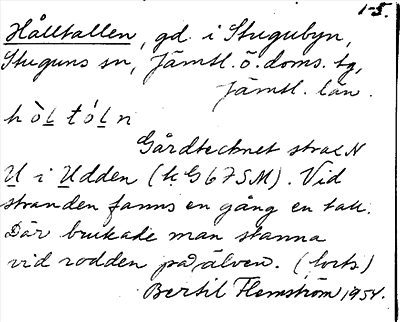 1-5.
Hålltallen, gd. i Stugubyn,
Stuguns sn, Jämtl. ö. doms. tg,
Jämtl. län.
hòḷ tóḷn
Gårdtecknet strax N
U i Udden (k G67SM). Vid
stranden fanns en gång en tall.
Där brukade man stanna
vid rodden på älven. (forts)
Bertil Flemström 1954.